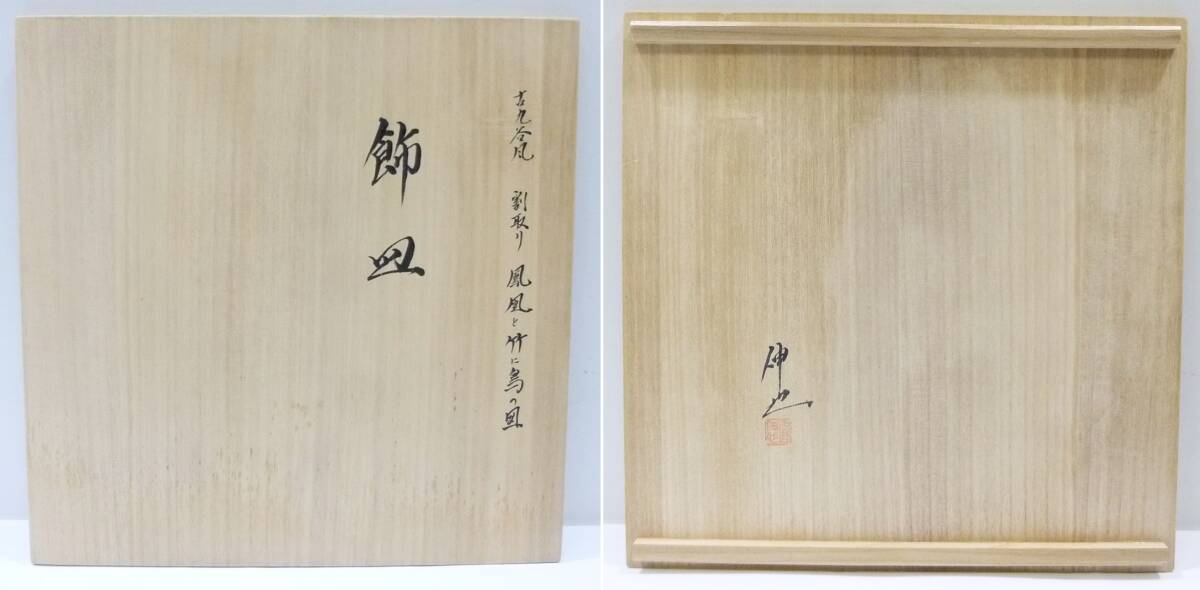 古九谷風 割取り 鳳凰と竹に鳥の図
飾皿
伸也